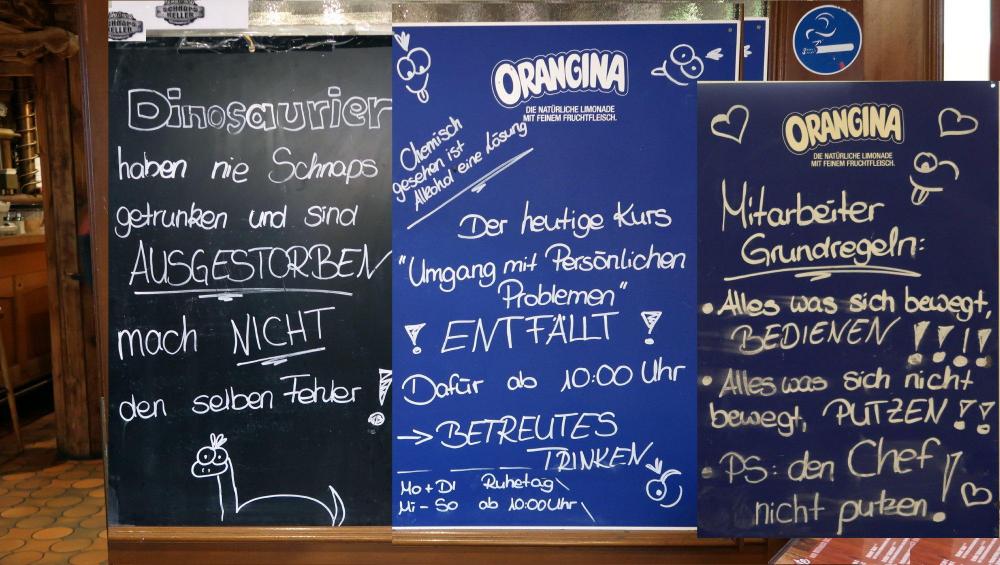 SCHNAPS
KELLER
SCHNAPS
KELLER
Dinosaurier
haben nie Schnaps
getrunken und sind
AUSGESTORBEN
mach NICHT
den selben Fehler !
ORANGINA
DIE NATÜRLICHE LIMONADE
MIT FEINEM FRUCHTFLEISCH.
Chemisch
gesehen ist
Alkohol eine Lösung
Der heutige Kurs
"Umgang mit Persönlichen
Problemen"
! ENTFÄLLT !
Dafür ab 10:00 Uhr
→ BETREUTES
TRINKEN
Mo + Di Ruhetag
Mi - So ab 10:00 Uhr
ORANGINA
DIE NATÜRLICHE LIMONADE
MIT FEINEM FRUCHTFLEISCH.
Mitarbeiter
Grundregeln:
• Alles was sich bewegt,
BEDIENEN !!!!
• Alles was sich nicht
bewegt, PUTZEN !!
• PS: den Chef
nicht putzen !